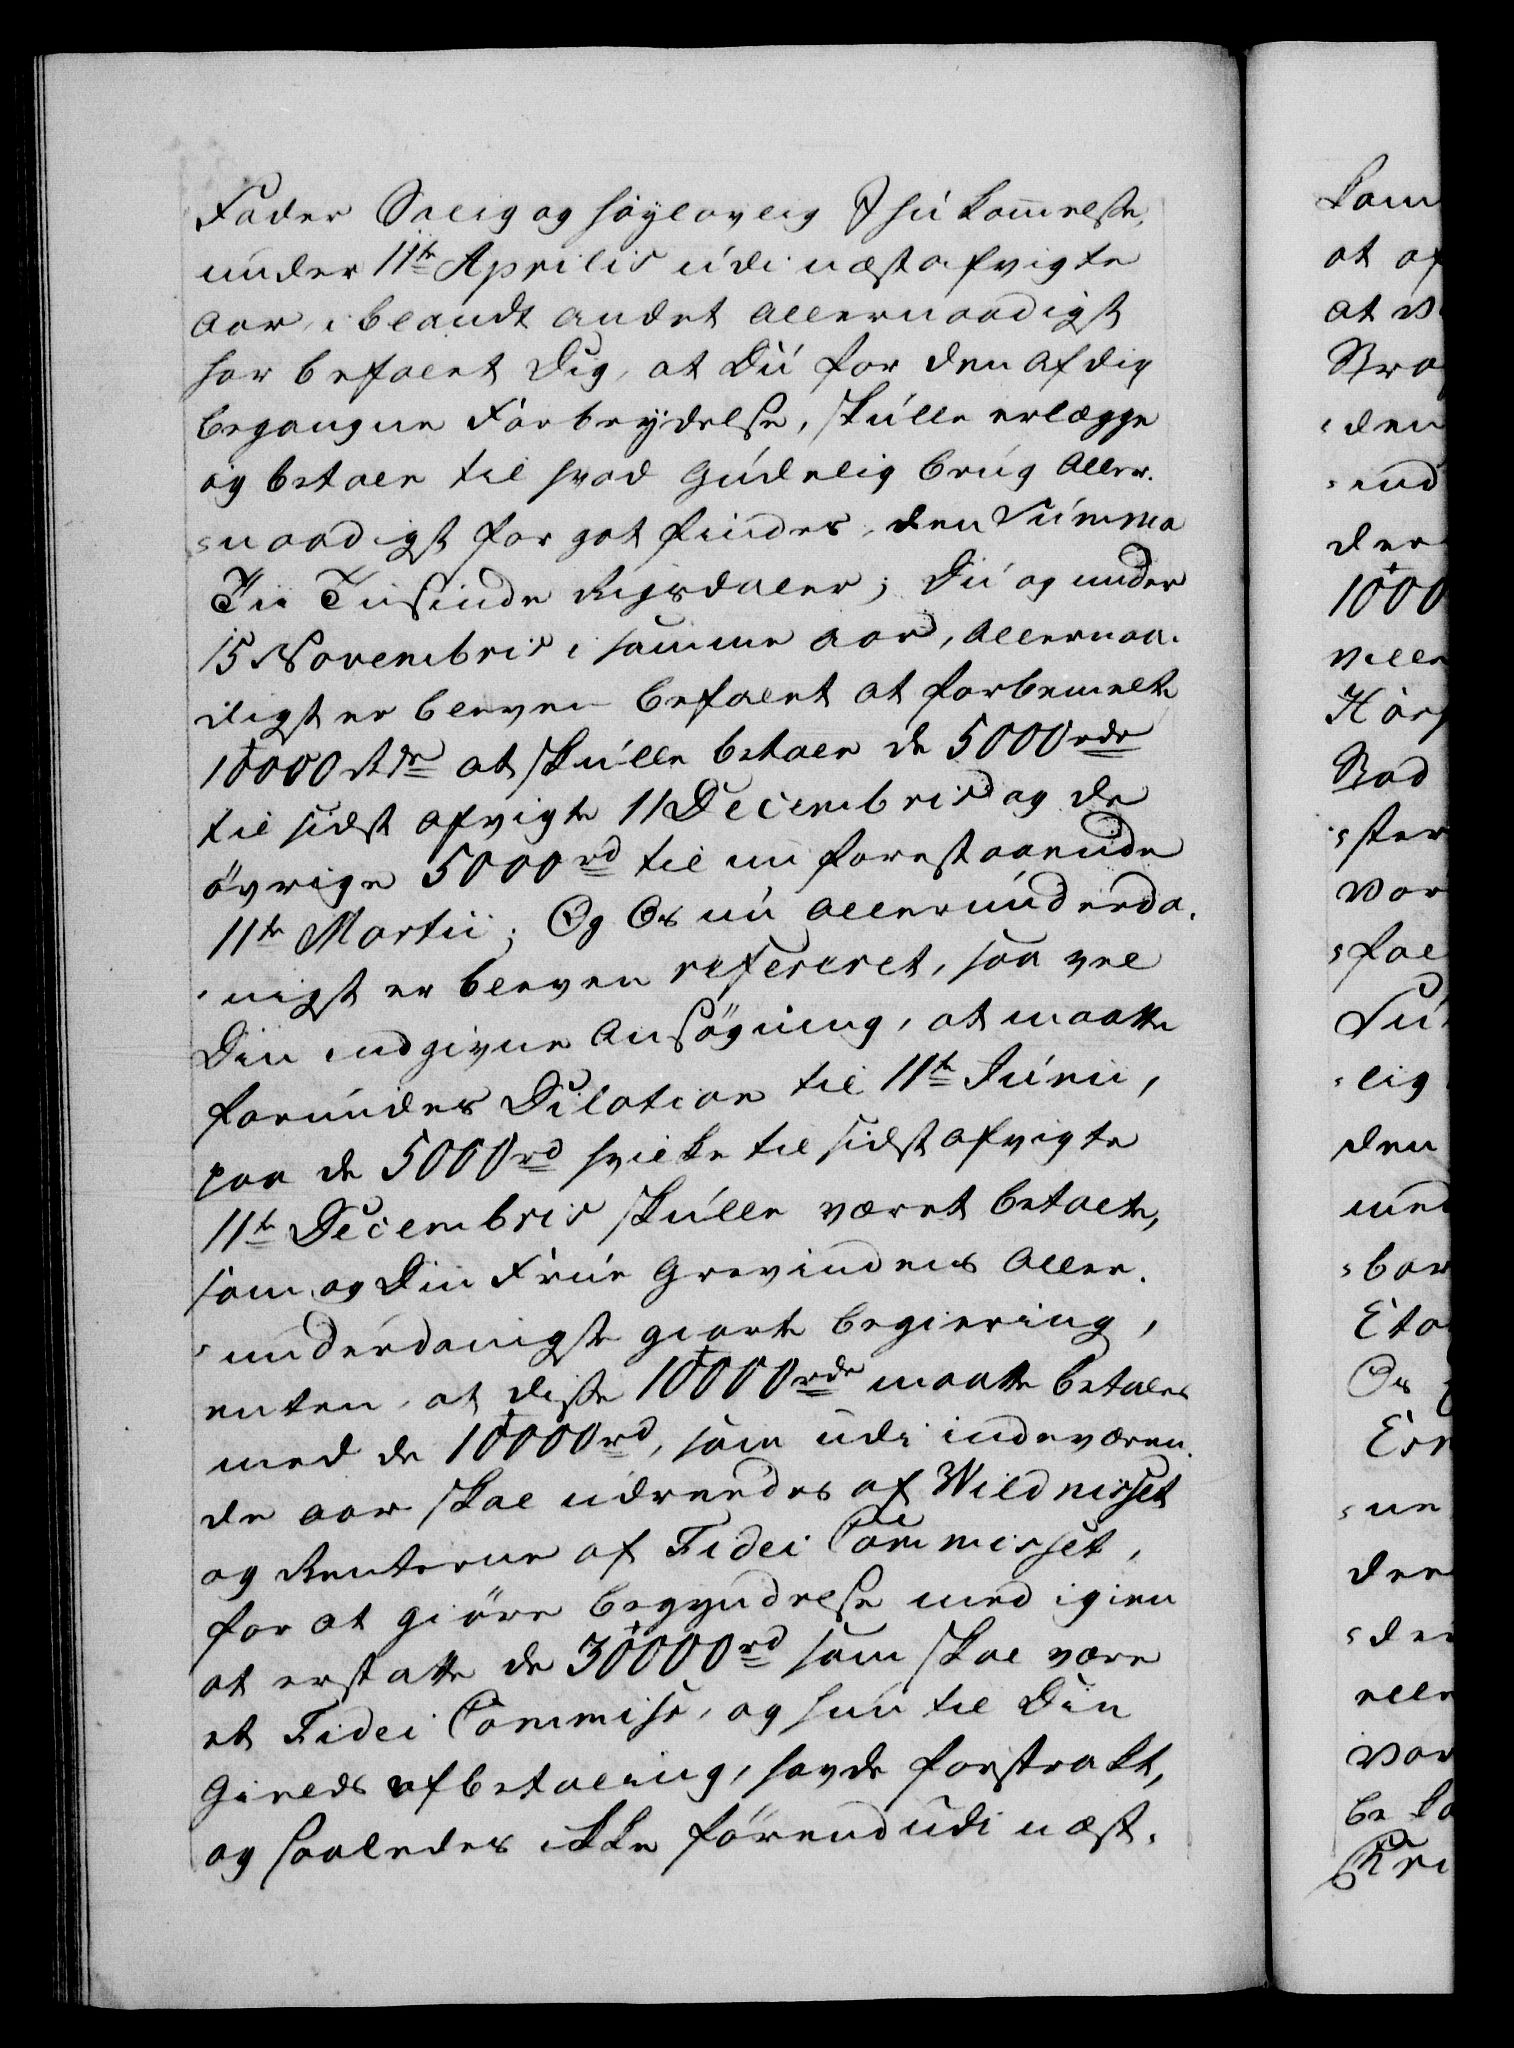 Fader Salig og höylovlig Ihukommelse,
under 11te Aprilis udi næstafvigte
Aar, iblandt andet allernaadigst
har befalet Dig, at Du for den af dig
begangne Forbrydelse, skulle erlægge
og betale til hvad Gudelig brug Aller-
naadigst for got findes, den Summa
Tii Tusinde Rijxdaler; Du og under
15 Novembris i samme aar, allernaa-
digst er bleven befalet at forbemelte
10000 Rdr at skulle betale de 5000 rdr
til sidst afvigte 11 Decembris og de
övrige 5000 rd til nu forestaaende
11te Martii; Og Os nu allerunderda-
nigst er bleven refereret, saa vel
Din indgivne Ansögning, at maatte
forundes Dilation til 11te Junii,
paa de 5000 rd hvilke til sidstafvigte
11te Decembris skulle været betalte,
som og Din Frue Grevindens Aller-
underdanigste giorte begiering,
enten, at disse 10000 rdr maatte betales
med de 10000 rd, som udi indeværen-
de aar skal udreedes af Wildnisset
og Renterne af Fidei Commisset,
for at giöre begyndelse med igien
at erstatte de 30000 rd som skal være
et Fidei Commiss, og hun til Din
Gields afbetaling, havde forstrakt,
og saaledes ikke förend udi næst-
Kom
at af
at
den
ind
der
1000
ville
Bad
ster
vor
fal
lig
den
med
bar
Eta
Os
ne
den
eller
vor